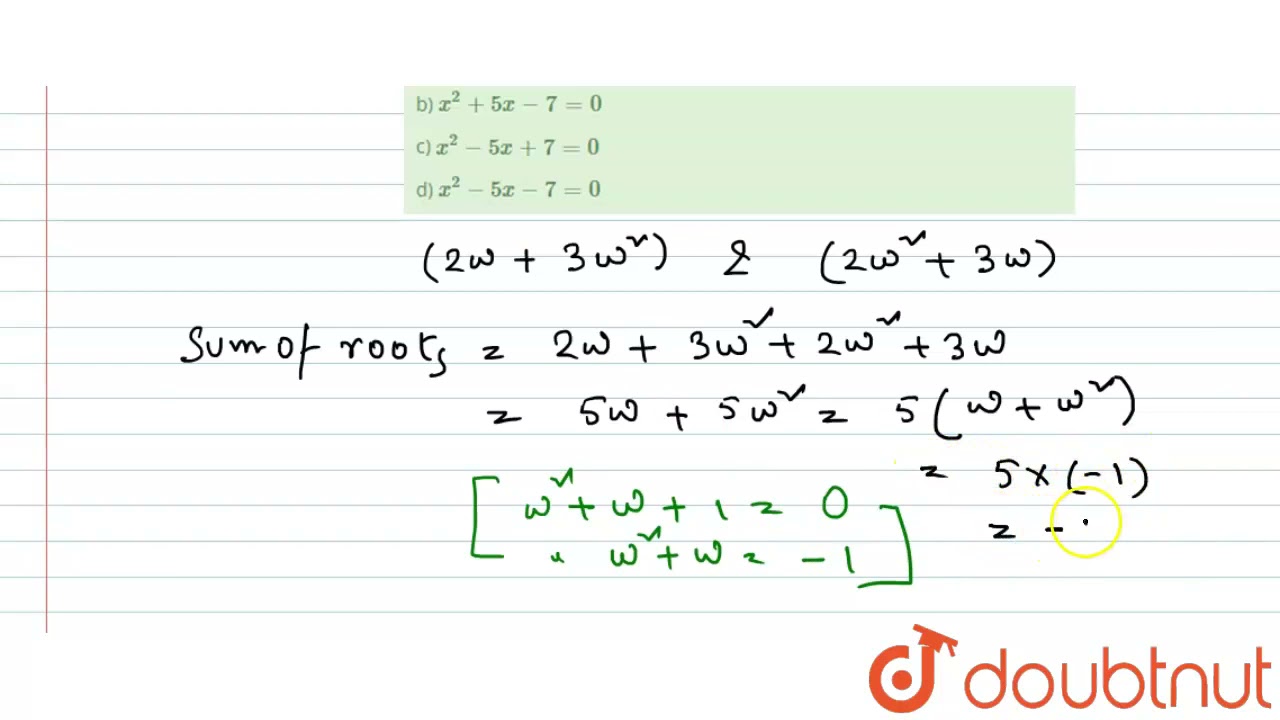 b) x² + 5x − 7 = 0
c) x² − 5x + 7 = 0
d) x² − 5x − 7 = 0
(2ω + 3ω²) & (2ω² + 3ω)
Sum of roots = 2ω + 3ω² + 2ω² + 3ω
= 5ω + 5ω² = 5(ω + ω²)
= 5 × (-1)
[ω² + ω + 1 = 0
= -
ω² + ω = -1]
doubtnut